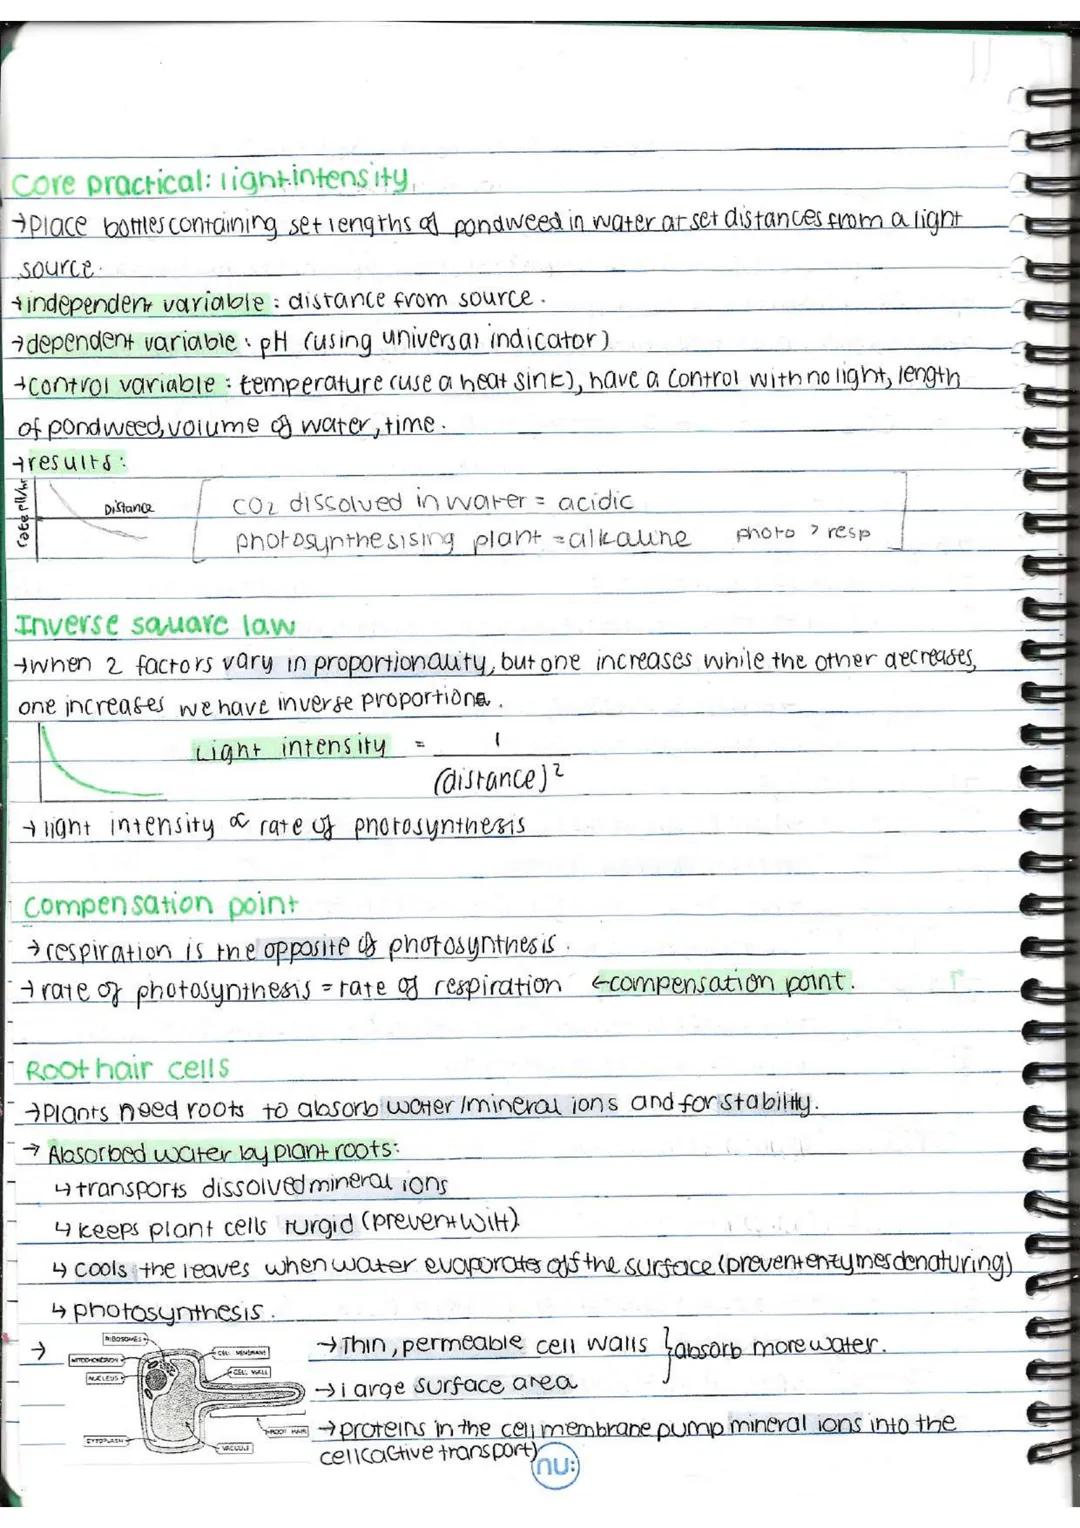 Core practical: light intensity
→Place bottles containing set lengths of pondweed in water at set distances from a light
source.
→independent variable: distance from source.
→dependent variable: pH (using universal indicator)
→control variable: temperature (use a heat sink), have a control with no light, length
of pondweed, volume of water, time.
→results:
rate pH/hr
Distance
CO2 dissolved in water = acidic
photosynthesising plant = alkaline photo > resp
Inverse square law
→when 2 factors vary in proportionality, but one increases while the other decreases,
one increases we have inverse proportions.
Light intensity = 1
(distance)²
→light intensity ∝ rate of photosynthesis
Compensation point
→respiration is the opposite of photosynthesis.
→rate of photosynthesis = rate of respiration ←compensation point.
Root hair cells
→Plants need roots to absorb water/mineral ions and for stability.
→Absorbed water by plant roots:
↳transports dissolved mineral ions
↳keeps plant cells turgid (prevent wilt)
↳cools the leaves when water evaporates off the surface (prevent enzymes denaturing)
↳photosynthesis.
→
RIBOSOMES
MITOCHONDRION
NUCLEUS
CYTOPLASM
CELL MEMBRANE
CELL WALL
ROOT HAIR
VACUOLE
→Thin, permeable cell walls } absorb more water.
→large surface area
→proteins in the cell membrane pump mineral ions into the
cell (active transport)
nu: